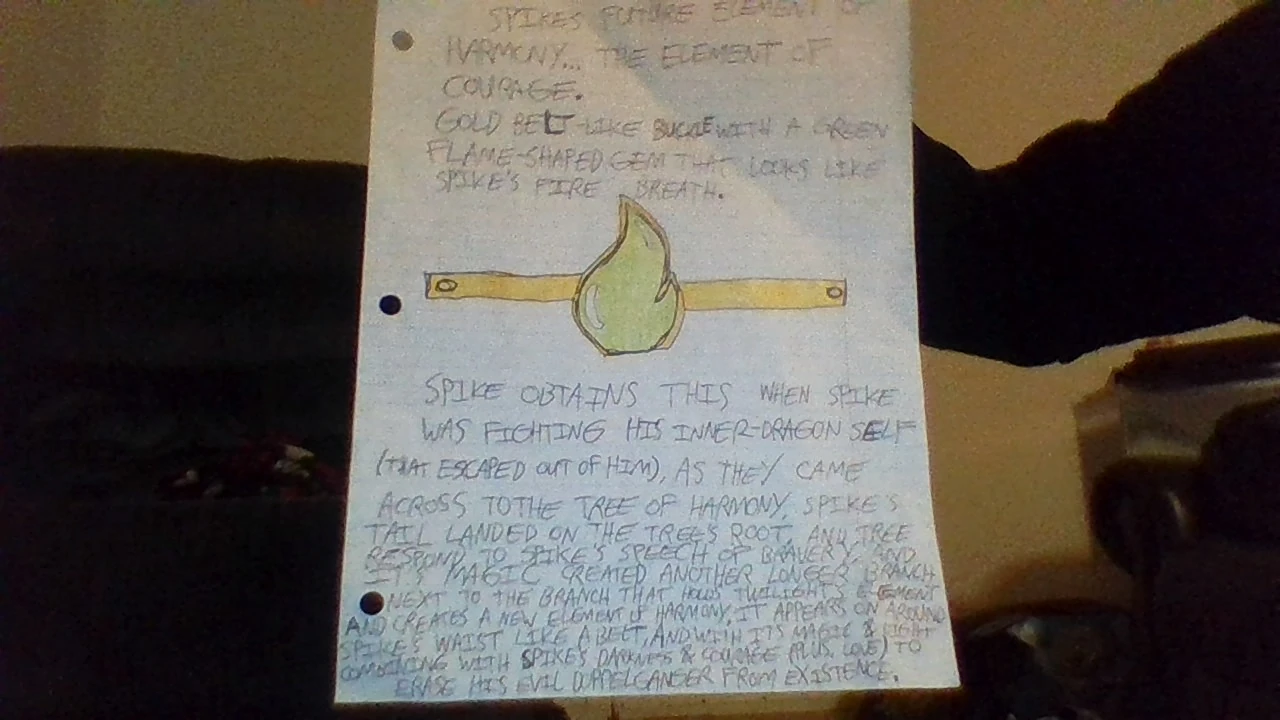 SPIKES FUTURE ELEMENT OF
HARMONY... THE ELEMENT OF
COURAGE.
GOLD BELT-LIKE BUCKLE WITH A GREEN
FLAME-SHAPED GEM THAT LOOKS LIKE
SPIKE'S FIRE BREATH.
SPIKE OBTAINS THIS WHEN SPIKE
WAS FIGHTING HIS INNER-DRAGON SELF
(THAT ESCAPED OUT OF HIM), AS THEY CAME
ACROSS TO THE TREE OF HARMONY. SPIKE'S
TAIL LANDED ON THE TREE'S ROOT, AND TREE
RESPOND TO SPIKE'S SPEECH OF BRAVERY, AND
IT'S MAGIC CREATED ANOTHER LONGER BRANCH
NEXT TO THE BRANCH THAT HOLDS TWILIGHT'S ELEMENT
AND CREATES A NEW ELEMENT OF HARMONY. IT APPEARS ON AROUND
SPIKE'S WAIST LIKE A BELT, AND WITH ITS MAGIC & LIGHT
COMBINING WITH SPIKE'S DARKNESS & COURAGE (PLUS, LOVE) TO
ERASE HIS EVIL DOPPELGANGER FROM EXISTENCE.